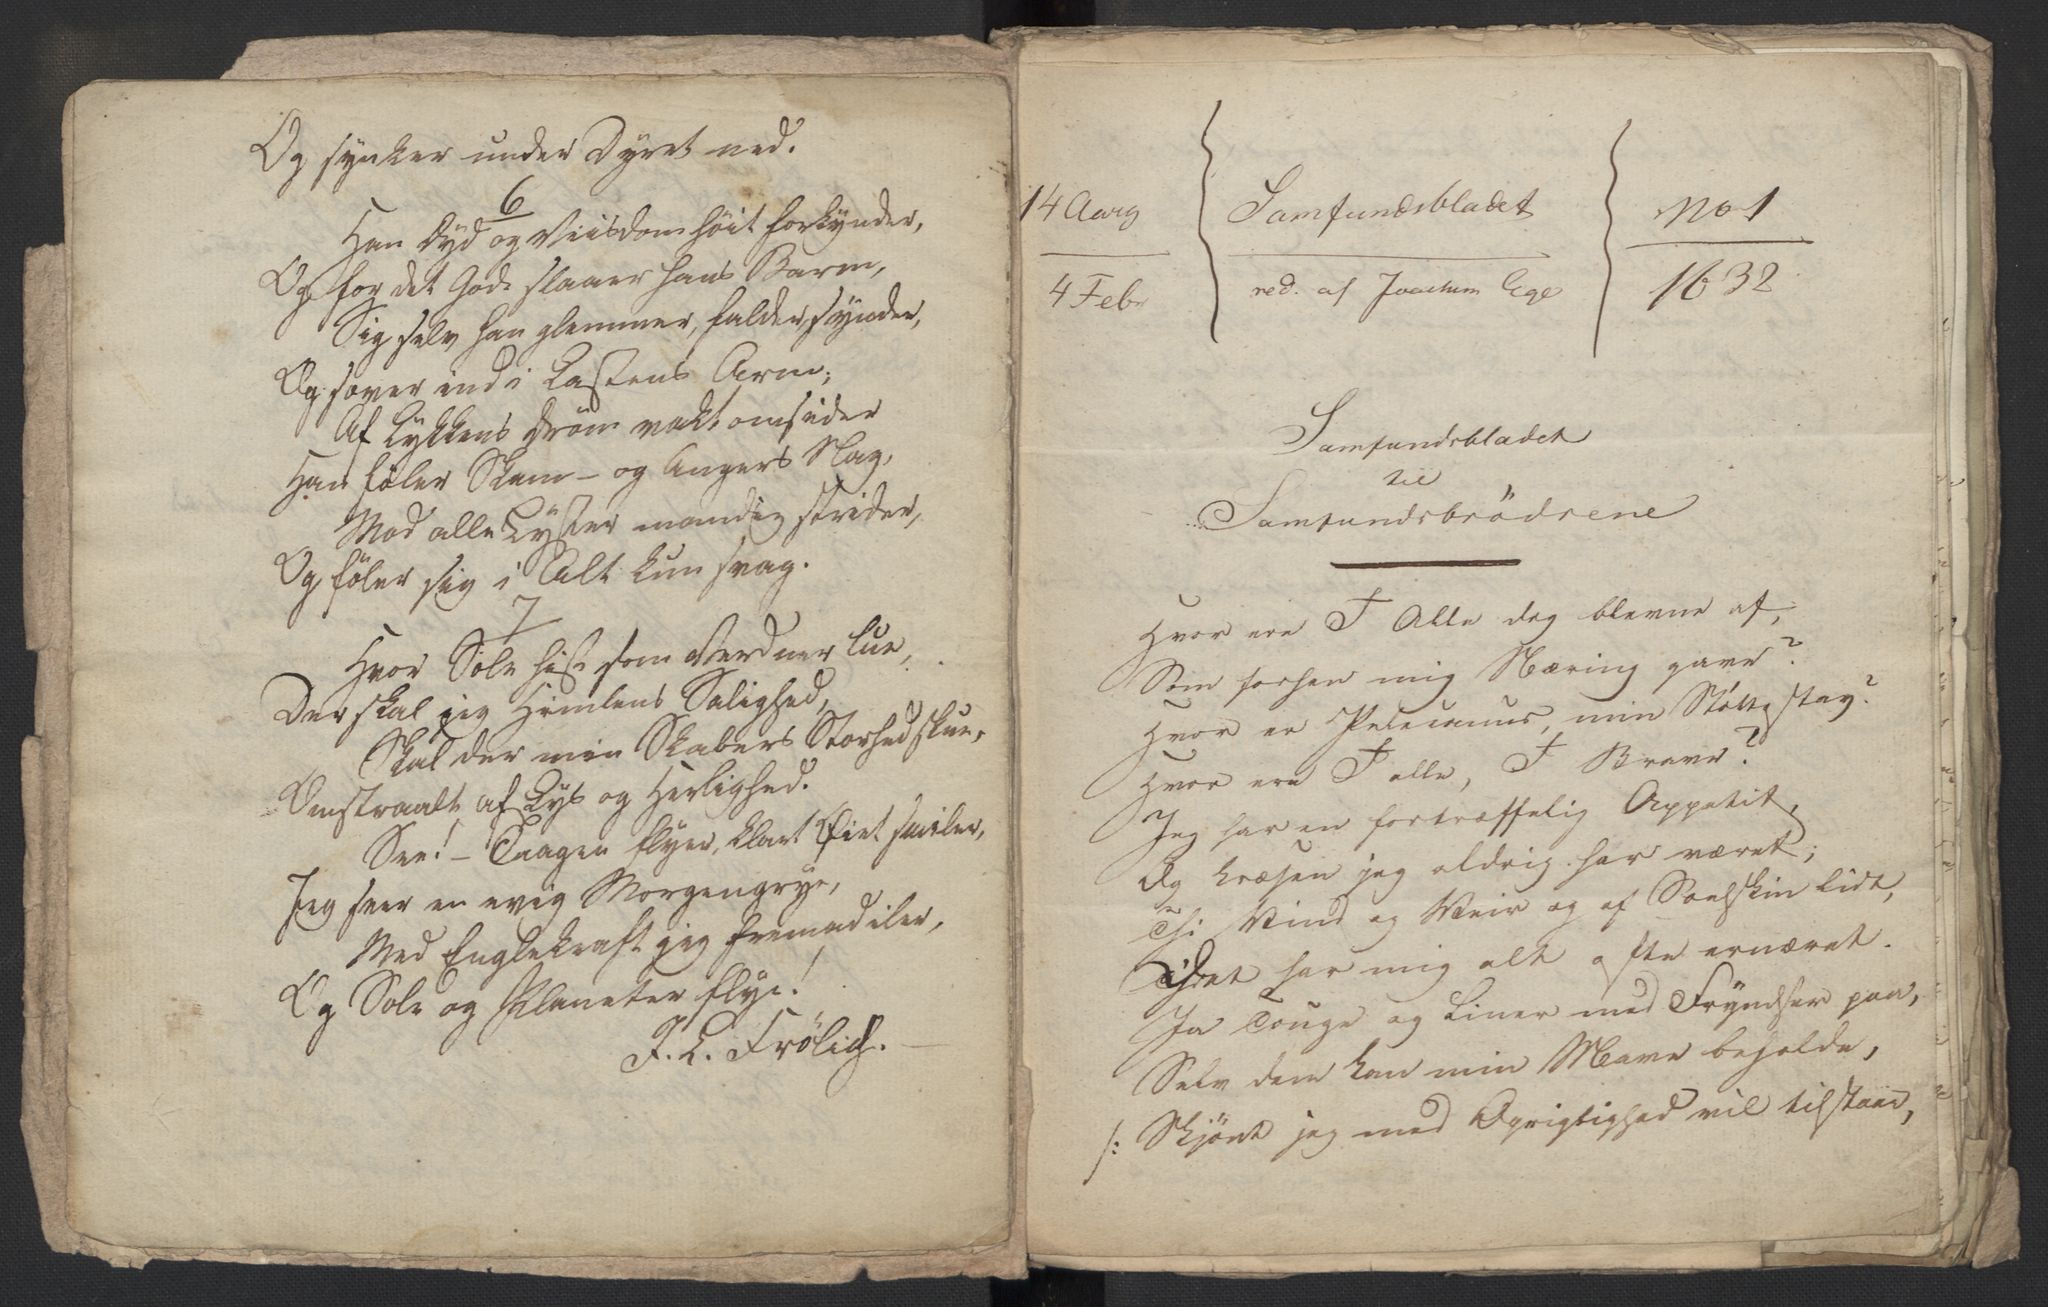 Og synker under Dyret ned.
6
Han Dyd og Viisdom höit forkynder,
Og for det Gode slaaer hans Barm,
Sig selv han glemmer, falder, synder,
Og sover ind i Lastens Arm;
Af Lykkens Dröm vakt omsider
Han föler Skam- og Angers Nag,
Mod alle Lyster mandig strider,
Og föler sig i Alt kun svag.
7
Hvor Sole hist som Verdner lue,
Der skal jeg Himlens Salighed,
Skal der min Skabers Storhed skue,
Omstraalt af Lys og Herlighed.
See! – Taagen flyer, klart Øiet smiler,
Jeg seer en evig Morgengrye,
Med Englekraft jeg fremad iler,
Og Sole og Planeter flye!
F. L. Frölich.
14 Aarg
4 Feb
Samfundsbladet
red. af Joachim Ege
No 1
1832
Samfundsbladet
til
Samfundsbrödrene
Hvor ere I Alle dog blevne af,
Som forhen mig Næring gave?
Hvor er Pelicanus, min Støttestav?
Hvor ere I alle, I Brave?
Jeg har en fortræffelig Appetit,
Og kræsen jeg aldrig har været;
Thi Vind og Veir og af Soelskin lidt,
Det har mig alt ofte ernæret.
Ja Touge og Liner med Fryndser paa,
Selv dem kan min Mave beholde,
/: Skjönt jeg med Oprigtighed vil tilstaae,